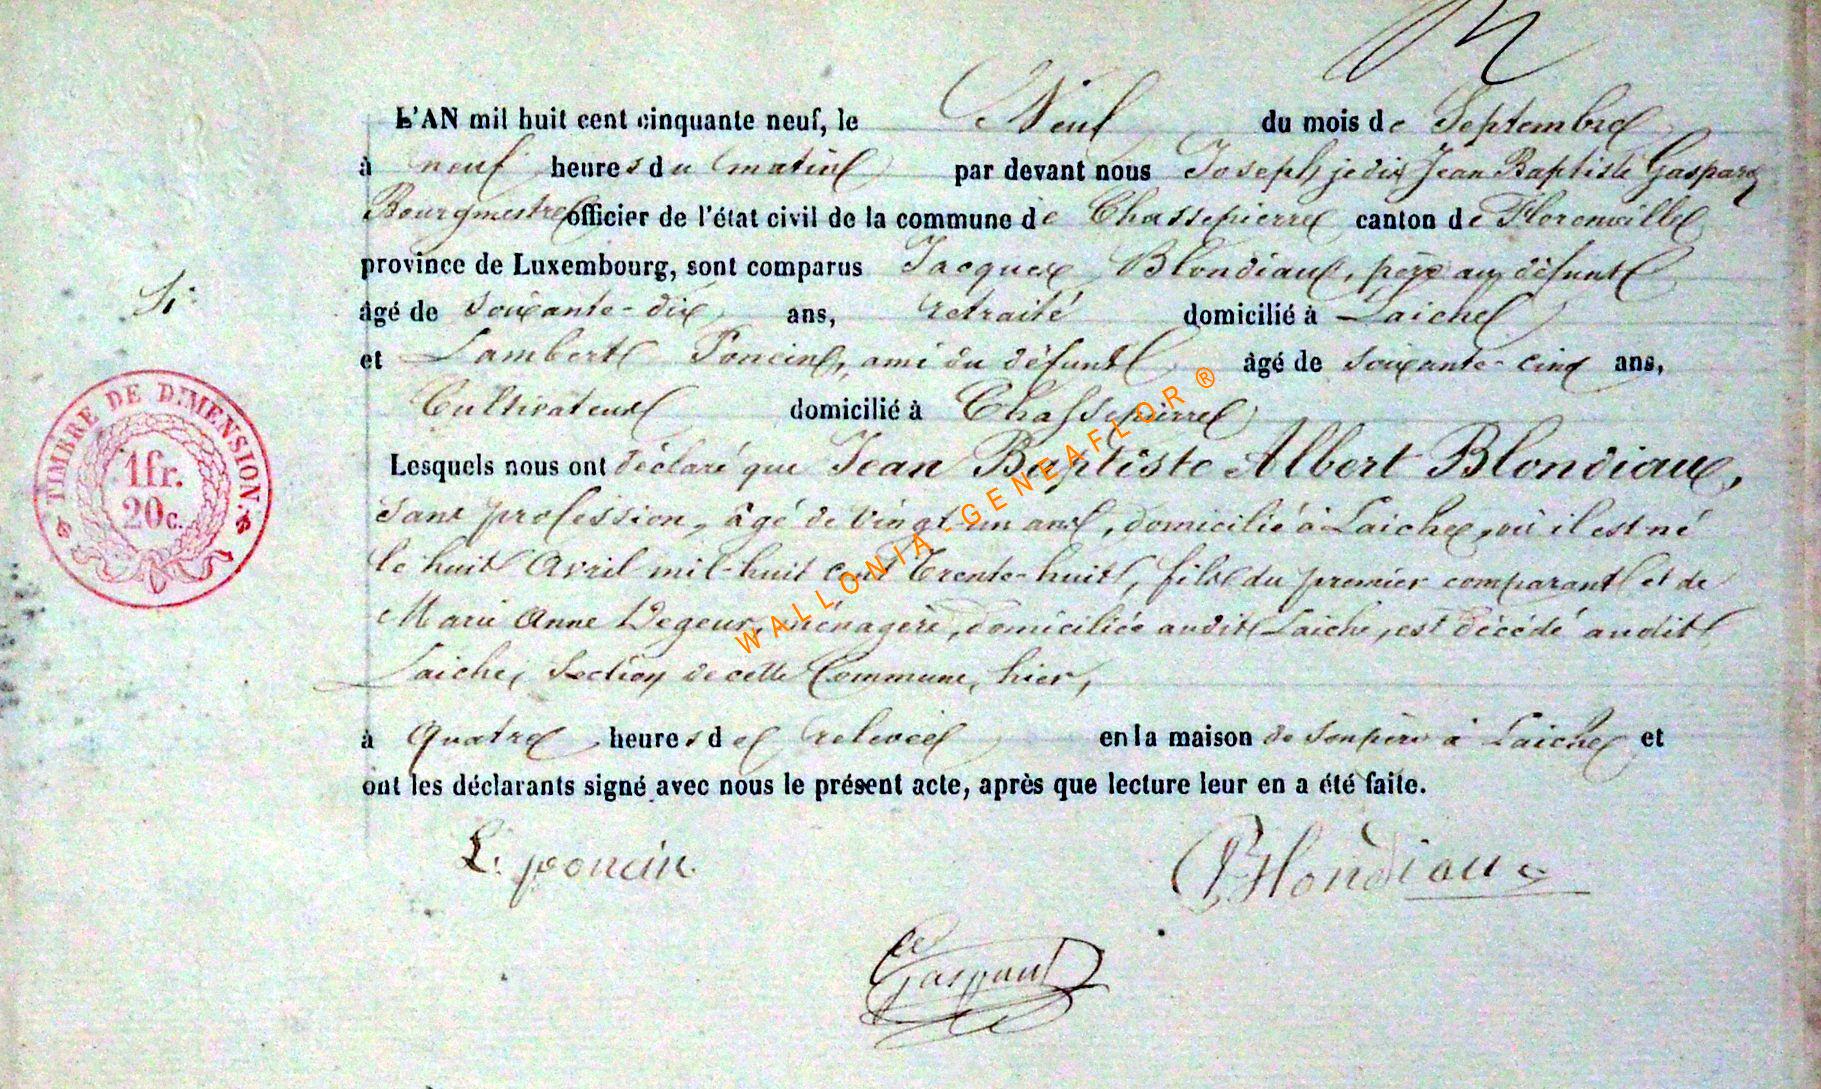 L'AN mil huit cent cinquante neuf, le Neuf du mois de Septembre
à neuf heures du matin par devant nous Joseph je dis Jean Baptiste Gaspard
Bourgmestre officier de l'état civil de la commune de Chassepierre canton de Florenville
province de Luxembourg, sont comparus Jacques Blondiaux, père au défunt
âgé de soixante-dix ans, retraité domicilié à Laiche
et Lambert Poncin, ami du défunt âgé de soixante-cinq ans,
Cultivateur domicilié à Chassepierre
Lesquels nous ont déclaré que Jean Baptiste Albert Blondiaux,
sans profession, âgé de vingt-un ans, domicilié à Laiche, où il est né
le huit Avril mil-huit cent Trente-huit, fils du premier comparant et de
Marie Anne Degeur, ménagère, domiciliée audit Laiche, est décédé audit
Laiche, Section de cette Commune, hier,
à Quatre heures de relevée en la maison de son père à Laiche et
ont les déclarants signé avec nous le présent acte, après que lecture leur en a été faite.
L. poncin
Blondiaux
Gaspard
TIMBRE DE DIMENSION.
1fr.
20c.
WALLONIA-GENEAFLOR ®